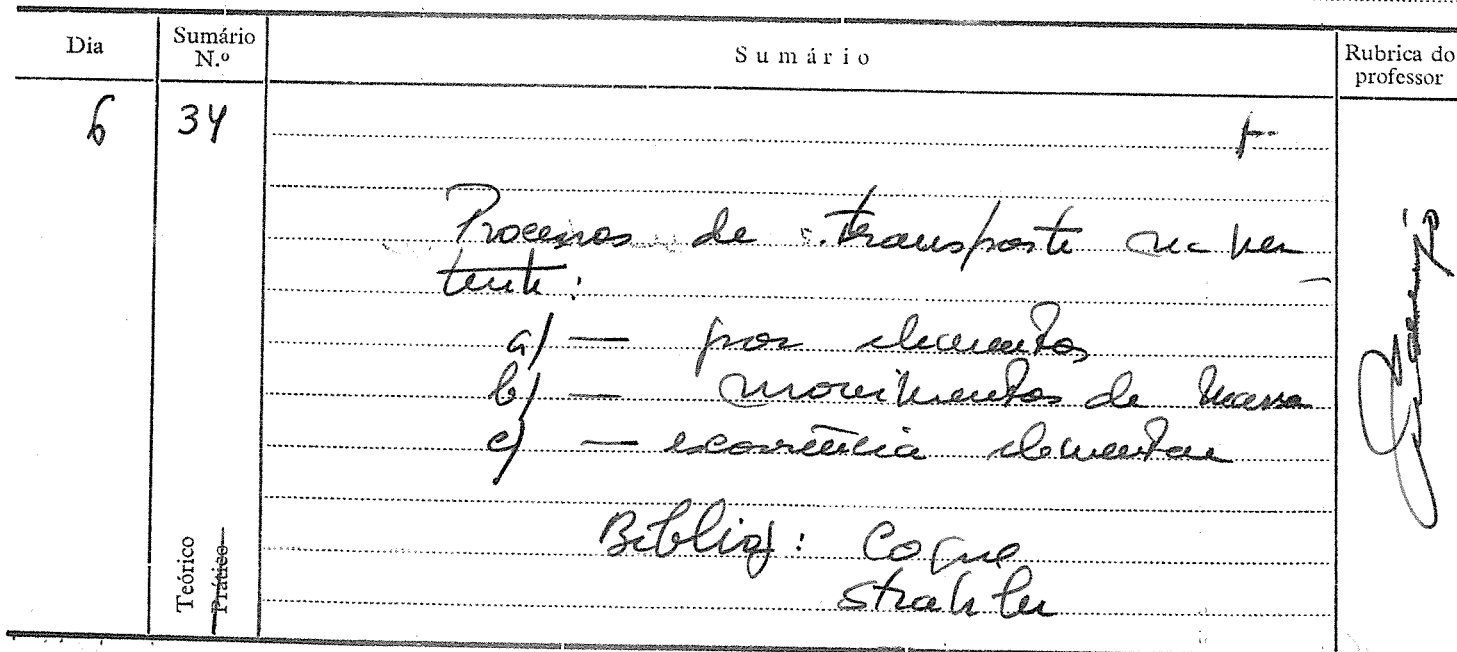 Dia
Sumário N.º
Sumário
Rubrica do professor
6
34
Processos de transporte na ver
tente:
a) — por elementos
b) — movimentos de massa
c) — escorrência elementar
Bibliog: Coque
Strahler
Teórico
Prático